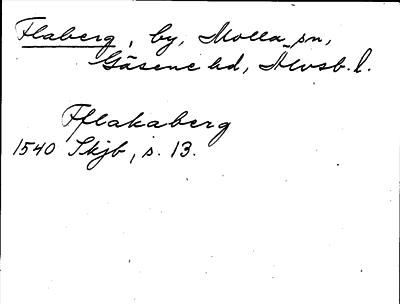 Flaberg, by, Molla sn,
Gäsene hd, Älvsb. l.
Fflakaberg
1540 Skjb, s. 13.